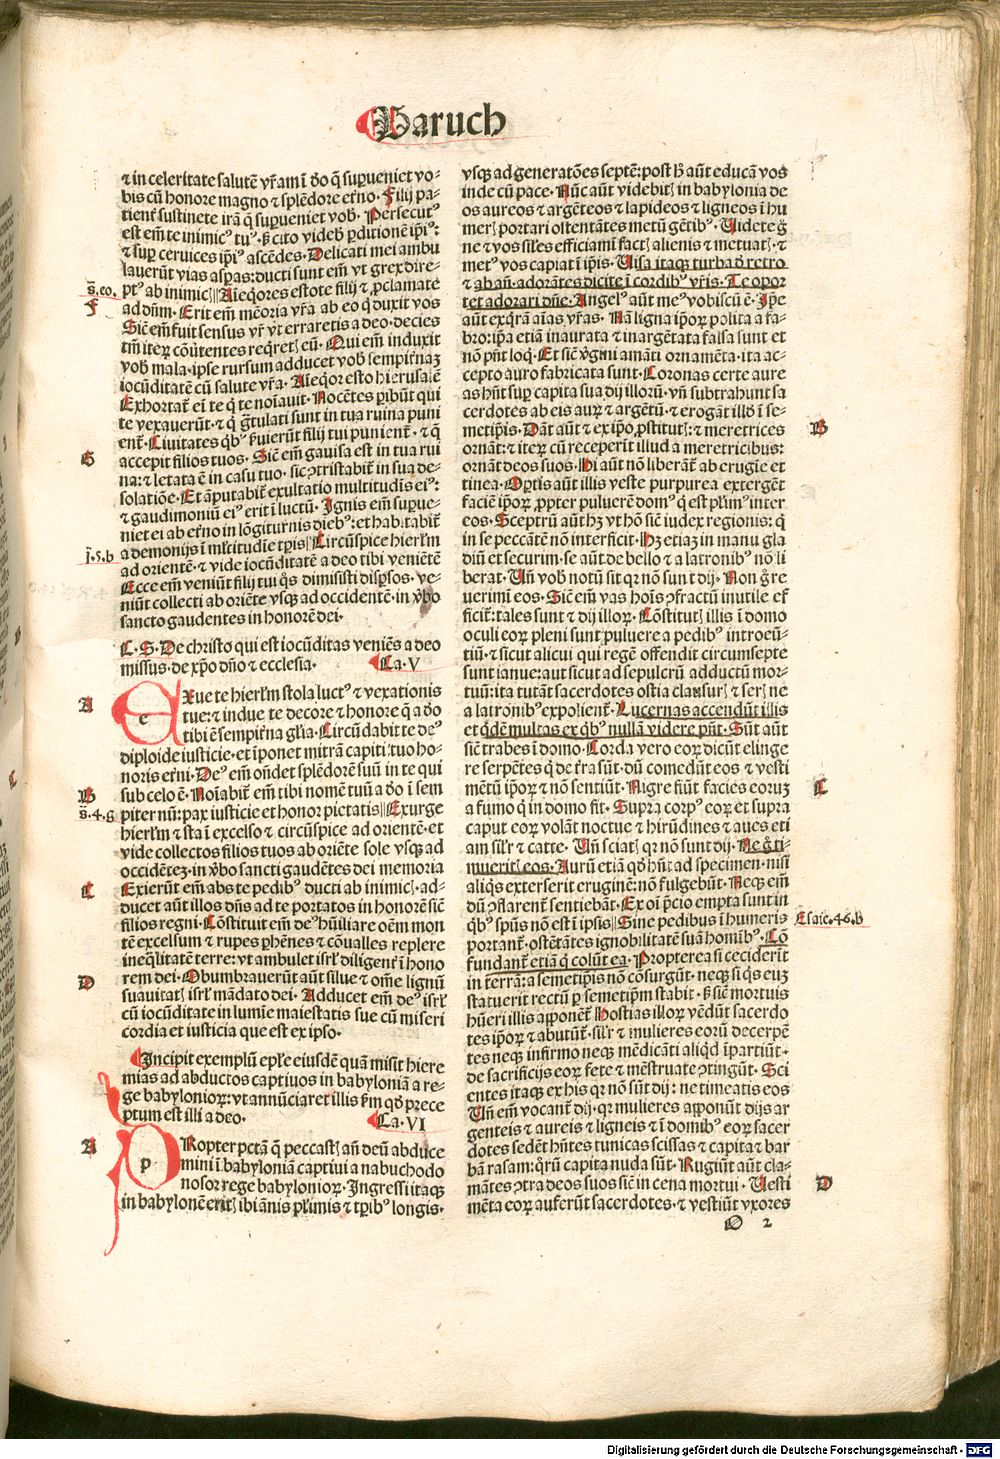 Baruch
⁊ in celeritate salutē vr̄am ī do q̄ supueniet vo-
bis cū honore magno ⁊ splēdore et̄no. Filij pa-
tient̄ sustinete irā q̄ supueniet vob̄. Persecutꝰ
est em̄ te inimicꝰ tuꝰ. s̄ cito videb̄ pditionē ip̄iꝰ:
⁊ sup ceruices ip̄iꝰ ascēdes. Delicati mei ambu
lauerūt vias aspas: ducti sunt em̄ vt grex dire-
ptꝰ ab inimicꝭ || Aīeq̄ores estote filij ⁊ pclamate
s̄.eo.
F
ad dn̄m. Erit em̄ mēoria vr̄a ab eo q̄ duxit vos
Sic̄ em̄ fuit sensus vr̄ vt erraretis a deo. decies
tm̄ iteꝝ cōūtentes reqret̄ eū. Qui em̄ induxit
vob̄ mala. ipse rursum adducet vob̄ sempit̄naꝫ
iocūditatē cū salute vr̄a. Aīeq̄or esto hierusalē
Exhortat̄ eī te q̄ te noīauit. Nocētes pibūt qui
te vexauerūt: ⁊ q̄ ḡtulati sunt in tua ruina puni
ent̄. Ciuitates qb̄ꝰ s̄uierūt filij tui punient̄. ⁊ q̄
G
accepit filios tuos. Sic̄ em̄ gauisa est in tua rui
na: ⁊ letata ē in casu tuo. sic ↄtristabit̄ in sua de-
solatiōe. Et āputabit̄ exultatio multitudīs eiꝰ:
⁊ gaudimoniū eiꝰ erit ī luctū. Ignis em̄ supue-
niet ei ab et̄no in lōgiturnis diebꝰ: et habitabit̄
j̄.5.b
a demonijs ī ml̄titudīe tp̄is || Circūspice hierl̄m
ad orientē. ⁊ vide iocūditatē a deo tibi veniētē
Ecce em̄ veniūt filij tui q̄s dimisisti dispsos. ve-
niūt collecti ab oriēte vsqꝫ ad occidentē. in v̄bo
sancto gaudentes in honorē dei.
C.S. De christo qui est iocūditas veniēs a deo
missus. de xp̄o dn̄o ⁊ ecclesia. Ca. V
A
eXue te hierl̄m stola luctꝰ ⁊ vexationis
tue: ⁊ indue te decore ⁊ honore q̄ a do
tibi ē sempit̄na gl̄ia. Circūdabit te deꝰ
diploide iusticie. et īponet mitrā capiti tuo ho-
noris et̄ni. Deꝰ em̄ on̄det splēdorē suū in te qui
B
sub celo ē. Noīabit̄ em̄ tibi nomē tuū a do ī sem
s̄.4.g
piter nū: pax iusticie et honor pietatis || Exurge
hierl̄m ⁊ sta ī excelso ⁊ circūspice ad orientē. et
vide collectos filios tuos ab oriēte sole vsqꝫ ad
occidēteꝫ. in v̄bo sancti gaudētes dei memoria
C
Exierūt em̄ abs te pedibꝰ ducti ab inimicꝭ. ad-
ducet aūt illos dn̄s ad te portatos in honorē sic̄
filios regni. Cōstituit em̄ deꝰ hūiliare oēm mon
tē excelsum ⁊ rupes phēnes ⁊ cōualles replere
ineq̄litatē terre: vt ambulet isrl̄ diligent̄ ī hono
D
rem dei. Obumbrauerūt aūt silue ⁊ om̄e lignū
suauitatꝭ isrl̄ mādato dei. Adducet em̄ deꝰ isrl̄
cū iocūditate in lumīe maiestatis sue cū miseri
cordia et iusticia que est ex ipso.
Incipit exemplū ep̄le eiusdē quā misit hiere
mias ad abductos captiuos in babyloniā a re-
ge babylonioꝝ: vt annūciaret illis s̄m qd̄ prece
ptum est illi a deo. Ca. VI
A
pROpter pctā q̄ peccastꝭ an̄ deū abduce
mini ī babyloniā captiui a nabuchodo
nosor rege babylonioꝝ. Ingressi itaqꝫ
in babylonē eritꝭ ibi ānis pl̄imis ⁊ tpibꝰ longis.
vsqꝫ ad generatōes septē: post h̄ aūt educā vos
inde cū pace. Nūc aūt videbitꝭ in babylonia de
os aureos ⁊ argēteos ⁊ lapideos ⁊ ligneos ī hu
merꝭ portari ostentātes metū gētibꝰ. Uidete ḡ
ne ⁊ vos sil̄es efficiamī factꝭ alienis ⁊ metuatꝭ. ⁊
metꝰ vos capiat ī ip̄is. Uisa itaqꝫ turba d̄ retro
⁊ ab an̄. adorātes dicite ī cordibꝰ vr̄is. Te opor
tet adorari dn̄e. Angelꝰ aūt meꝰ vobiscū ē. Ip̄e
aūt exqrā aīas vr̄as. Nā ligna ip̄oꝝ polita a fa-
bro: ip̄a etiā inaurata ⁊ inargētata falsa sunt et
nō pn̄t loq. Et sic̄ v̄gini amāti ornamēta. ita ac-
cepto auro fabricata sunt. Coronas certe aure
as hn̄t sup capita sua dij illoꝝ. vn̄ subtrahunt sa
cerdotes ab eis auꝝ ⁊ argētū. ⁊ erogāt illd̄ ī se-
B
metip̄is. Dāt aūt ⁊ ex ip̄o pstitutꝭ: ⁊ meretrices
ornāt: ⁊ iteꝝ cū receperīt illud a meretricibus:
ornāt deos suos. Hi aūt nō liberāt̄ ab erugīe et
tinea. Optis aūt illis veste purpurea extergēt
faciē ip̄oꝝ ppter puluerē domꝰ q̄ est pl̄imꝰ inter
eos. Sceptrū aūt hꝫ vt hō sic̄ iudex regionis: q̄
in se peccātē nō interficit. Hꝫ etiaꝫ in manu gla
diū et securim. se aūt de bello ⁊ a latronibꝰ nō li
berat. Un̄ vob̄ notū sit qr nō sunt dij. Non ḡ re
uerimī eos. Sic̄ em̄ vas hoīs ↄfractū inutile ef
ficit̄: tales sunt ⁊ dij illoꝝ. Cōstitutꝭ illis ī domo
oculi eoꝝ pleni sunt puluere a pedibꝰ introeū-
tiū. ⁊ sicut alicui qui regē offendit circumsepte
sunt ianue: aut sicut ad sepulcrū adductū mor-
tuū: ita tutāt sacerdotes ostia clausurꝭ ⁊ serꝭ ne
a latronibꝰ expolient̄. Lucernas accendūt illis
et qdē multas ex qb̄ꝰ nullā videre pn̄t. Sūt aūt
sic̄ trabes ī domo. Corda vero eoꝝ dicūt elinge
re serpētes q̄ de t̄ra sūt. dū comedūt eos ⁊ vesti
C
mētū ip̄oꝝ ⁊ nō sentiūt. Nigre fiūt facies eoruꝫ
a fumo q̄ in domo fit. Supra corpꝰ eoꝝ et supra
caput eoꝝ volāt noctue ⁊ hirūdines ⁊ aues eti
am sil̄r ⁊ catte. Un̄ sciatꝭ qr nō sunt dij. Ne ḡ ti-
mueritꝭ eos. Aurū etiā qd̄ hn̄t ad specimen. nisi
aliqs exterserit eruginē: nō fulgebūt. Neqꝫ em̄
dū ↄflarent̄ sentiebāt. Ex oī p̄cio empta sunt in
Esaie.46.b
qb̄ꝰ spūs nō est ī ipsis || Sine pedibus ī humeris
portant̄. ostētātes ignobilitatē suā homībꝰ. Cō
fundant̄ etiā q̄ colūt ea. Propterea si ceciderīt
in terrā: a semetip̄is nō cōsurgūt. neqꝫ si qs euꝫ
statuerit rectū p semetip̄m stabit. s̄ sic̄ mortuis
hūeri illis apponēt̄. Hostias illoꝝ vēdūt sacerdo
tes ip̄oꝝ ⁊ abutūt̄. sil̄r ⁊ mulieres eorū decerpē
tes neqꝫ infirmo neqꝫ mēdicāti aliqd īpartiūt.
de sacrificijs eoꝝ fete ⁊ mēstruate ↄtingūt. Sci
entes itaqꝫ ex his qr nō sūt dij: ne timeatis eos
Un̄ em̄ vocant̄ dij. qr mulieres apponūt dijs ar
genteis ⁊ aureis ⁊ ligneis ⁊ ī domibꝰ eoꝝ sacer
dotes sedēt hn̄tes tunicas scissas ⁊ capita ⁊ bar
bā rasam: qr̄ū capita nuda sūt. Rugiūt aūt cla-
D
mātes ↄtra deos suos sic̄ in cena mortui. Uesti
mēta eoꝝ auferūt sacerdotes. ⁊ vestiūt vxores
O 2
Digitalisierung gefördert durch die Deutsche Forschungsgemeinschaft - DFG